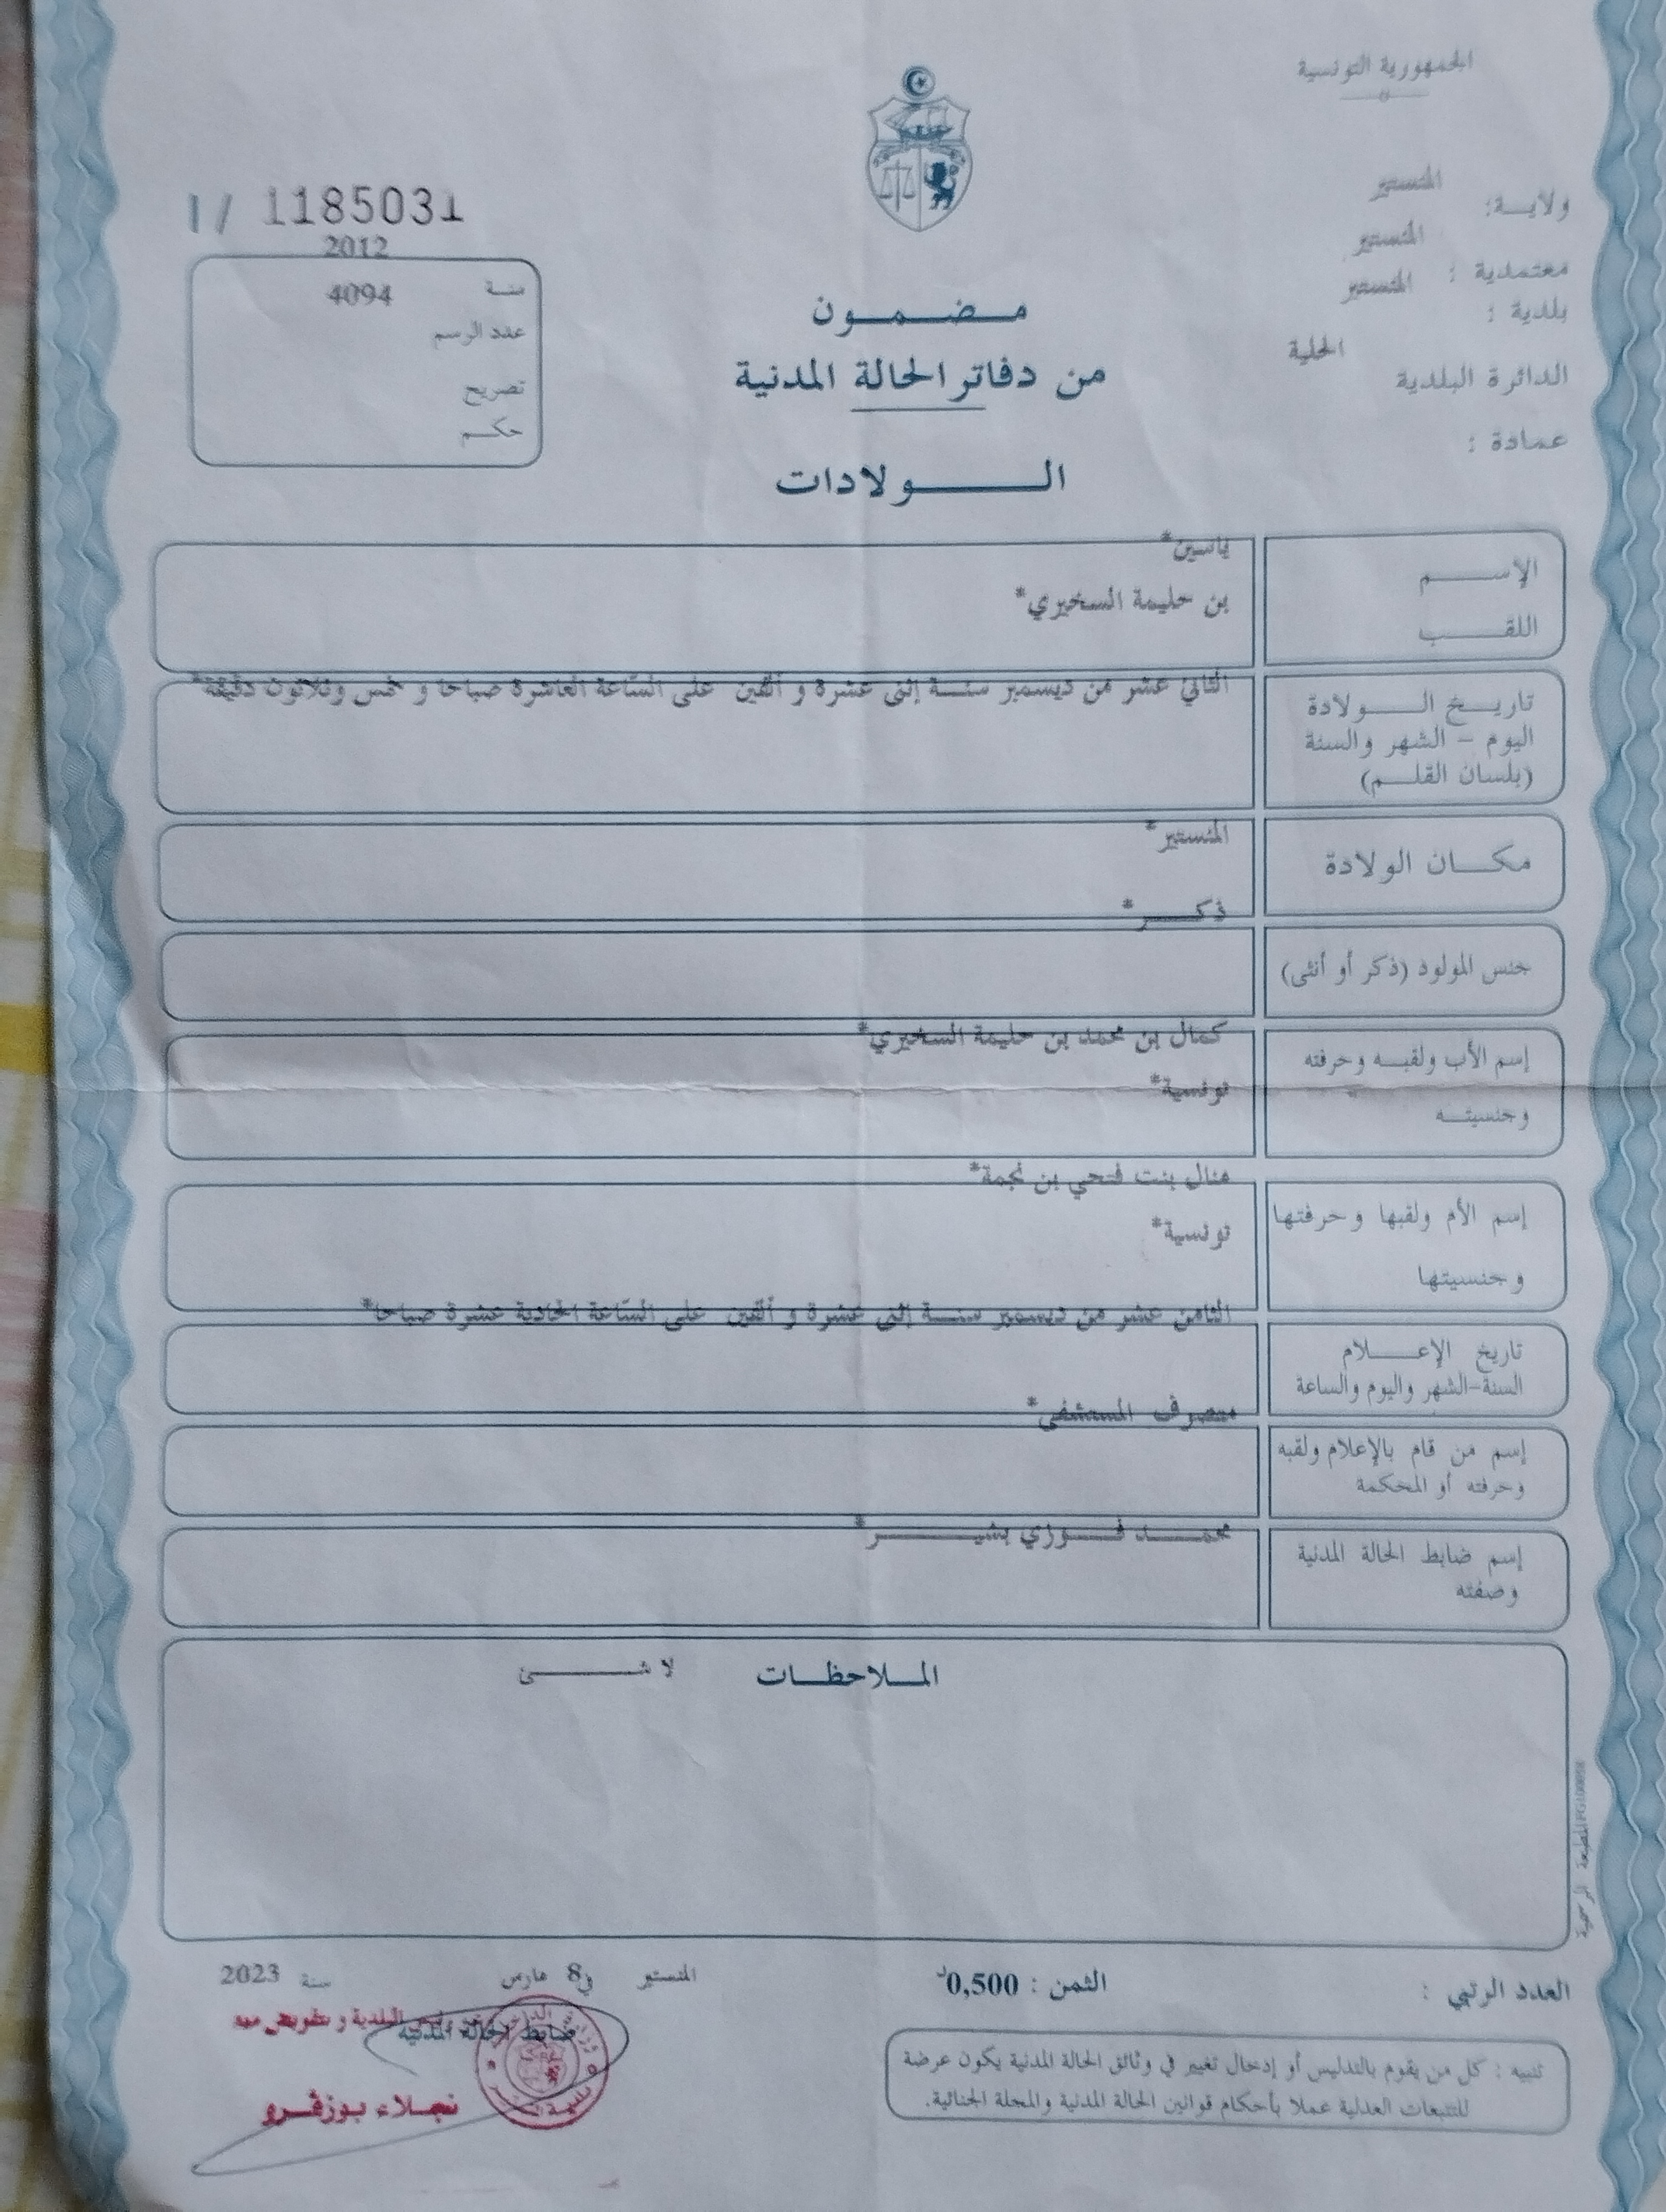 الجمهورية التونسية
ولايــة: المنستير
معتمدية : المنستير
بلدية : المنستير
الدائرة البلدية الحلية
عمادة :
I/ 1185031
سنة 2012
عدد الرسم 4094
تصريح
حكم
مضمون
من دفاتر الحالة المدنية
الولادات
الإسم ياسين*
اللقب بن حليمة السخيري*
تاريخ الولادة
اليوم - الشهر والسنة
(بلسان القلم)
الثاني عشر من ديسمبر سنة إثنى عشرة و ألفين على السّاعة العاشرة صباحا و خمس وثلاثون دقيقة*
مكان الولادة المنستير*
جنس المولود (ذكر أو أنثى) ذكر*
إسم الأب ولقبه وحرفته
وجنسيته
كمال بن محمد بن حليمة السخيري*
تونسية*
إسم الأم ولقبها وحرفتها
وجنسيتها
منال بنت فتحي بن نجمة*
تونسية*
تاريخ الإعلام
السنة-الشهر واليوم والساعة
الثامن عشر من ديسمبر سنة إثنى عشرة و ألفين على السّاعة الحادية عشرة صباحا*
إسم من قام بالإعلام ولقبه
وحرفته أو المحكمة
متصرف المستشفى*
إسم ضابط الحالة المدنية
وصفته
محمد فوزي بشير*
الملاحظات لا شئ
المطبعة الرسمية
العدد الرتبي :
الثمن : 0,500د
المنستير في 8 مارس سنة 2023
ضابط الحالة المدنية
البلدية و بتفويض منه
نجلاء بوزڤرو
تنبيه : كل من يقوم بالتدليس أو إدخال تغيير في وثائق الحالة المدنية يكون عرضة
للتتبعات العدلية عملا بأحكام قوانين الحالة المدنية والمجلة الجنائية.